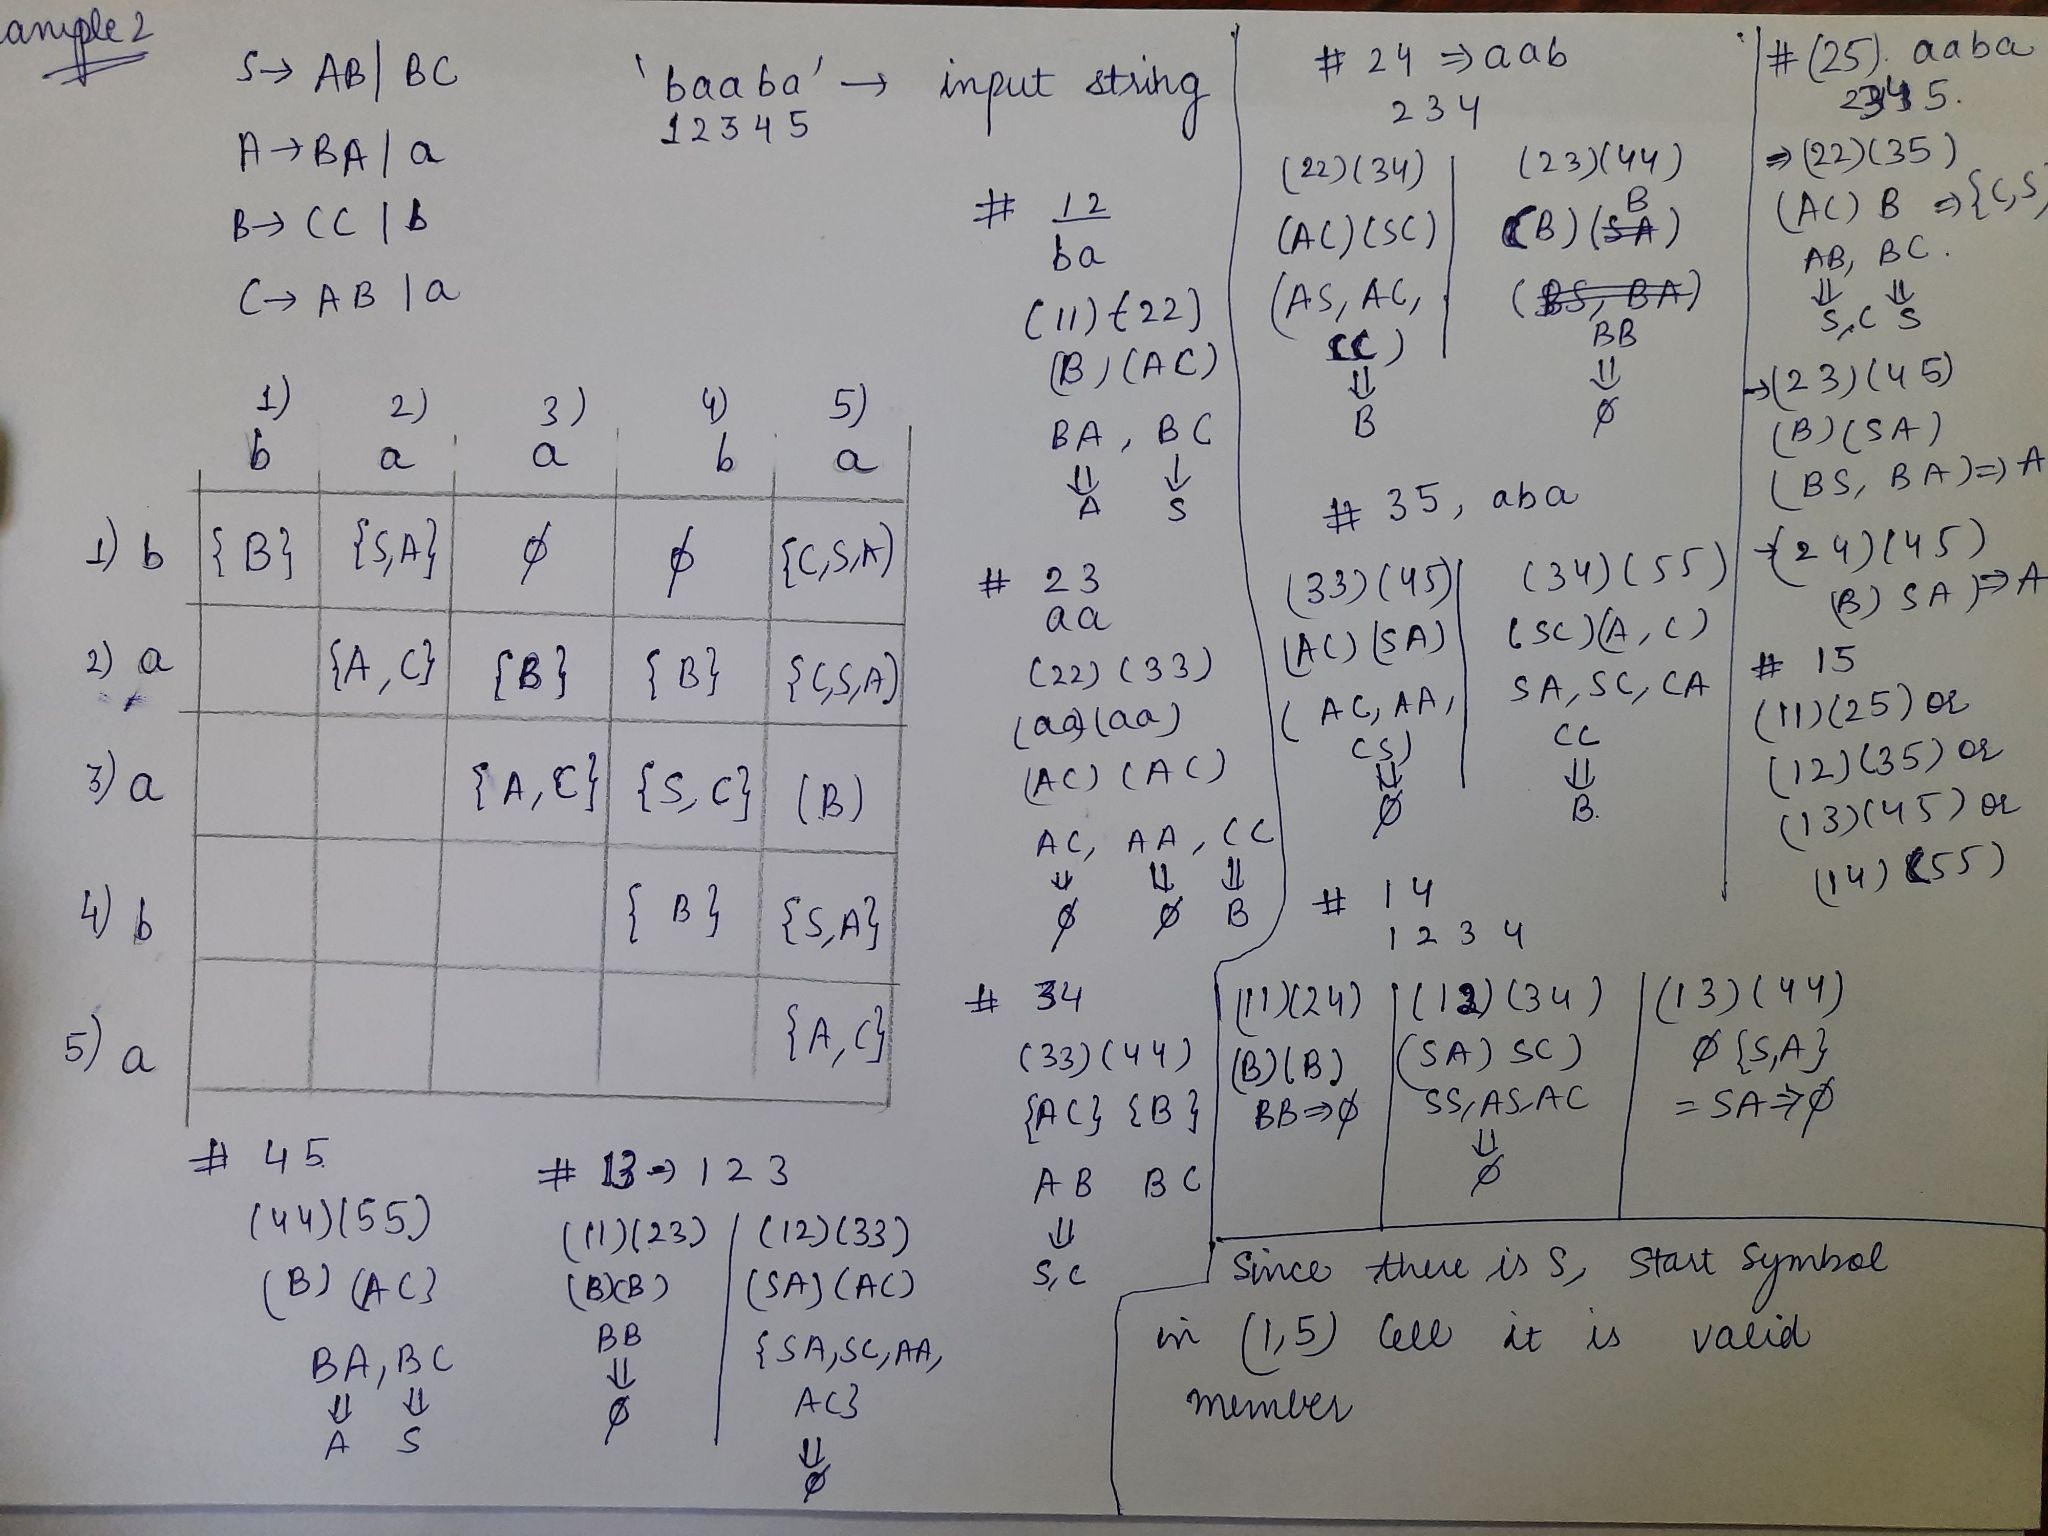 ample 2
S → AB | BC
A → BA | a
B → CC | b
C → AB | a
'baaba' → input string
1 2 3 4 5
1) 2) 3) 4) 5)
b a a b a
1) b {B} {S,A} ∅ ∅ {C,S,A)
2) a {A,C} {B} {B} {C,S,A)
3) a {A,C} {S,C} (B)
4) b {B} {S,A}
5) a {A,C}
# 45
(44)(55)
(B) (AC}
BA, BC
⇓ ⇓
A S
# 13 → 1 2 3
(11)(23)
(B)(B)
BB
⇓
∅
(12)(33)
(SA) (AC)
{SA, SC, AA,
AC}
⇓
∅
# 12
ba
(11) (22)
(B) (AC)
BA, BC
⇓ ↓
A S
# 23
aa
(22) (33)
(aa) (aa)
(AC) (AC)
AC, AA, CC
⇓ ⇓ ⇓
∅ ∅ B
# 34
(33)(44)
{AC} {B}
AB BC
⇓
S,C
# 24 ⇒ aab
2 3 4
(22)(34)
(AC)(SC)
(AS, AC,
CC)
⇓
B
(23)(44)
B
(B) (SA)
(BS, BA)
BB
⇓
∅
# 35, aba
(33)(45)
(AC)(SA)
(AC, AA,
CS)
⇓
∅
(34)(55)
(SC)(A,C)
SA, SC, CA
CC
⇓
B.
# 14
1 2 3 4
(11)(24)
(B)(B)
BB ⇒ ∅
(12)(34)
(SA) SC)
SS, AS, AC
⇓
∅
(13)(44)
∅ {S,A}
= SA ⇒ ∅
# (25). aaba
2 3 4 5.
⇒ (22)(35)
(AC) B ⇒ {C,S}
AB, BC.
⇓ ⇓
S,C S
→ (23)(45)
(B)(SA)
(BS, BA) ⇒ A
→ (24)(45)
(B) SA) ⇒ A
# 15
(11)(25) or
(12)(35) or
(13)(45) or
(14)(55)
Since there is S, Start Symbol
in (1,5) Cell it is valid
member